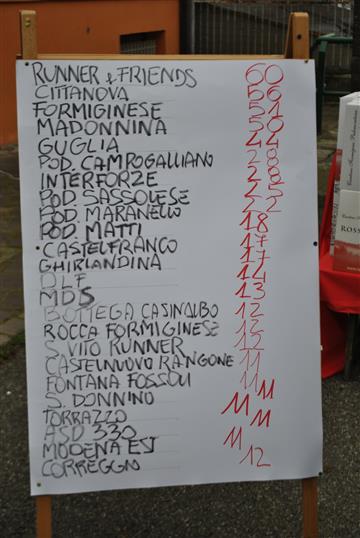 RUNNER & FRIENDS 60
CITTANOVA 56
FORMIGINESE 51
MADONNINA 50
GUGLIA 48
POD. CAMPOGALLIANO 28
INTERFORZE 28
POD SASSOLESE 25
POD. MARANELLO 22
POD. MATTI 18
CASTELFRANCO 17
GHIRLANDINA 17
DLF 14
MDS 13
BOTTEGA CASINALBO 12
ROCCA FORMIGINESE 12
S. VITO RUNNER 12
CASTELNUOVO RANGONE 11
FONTANA FOSSOLI 11
S. DONNINO 11
TORRAZZO 11
ASD 330 11
MODENA EST 11
CORREGGIO 12
ROSS